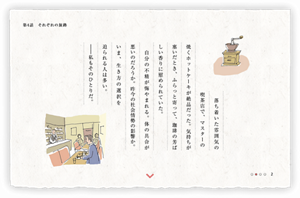 第3話　それぞれの旅路
落ち着いた雰囲気の
喫茶店で、マスターの
焼くホットケーキが絶品だった。気持ちが
塞いだとき、ふらっと寄って、珈琲の芳ば
しい香りに慰められていた。
自分の不穏が悔やまれる。体の具合が
悪いのだろうか。昨今の社会情勢の影響か。
いま、生き方の選択を
迫られる人は多い。
——私もそのひとりだ。
2